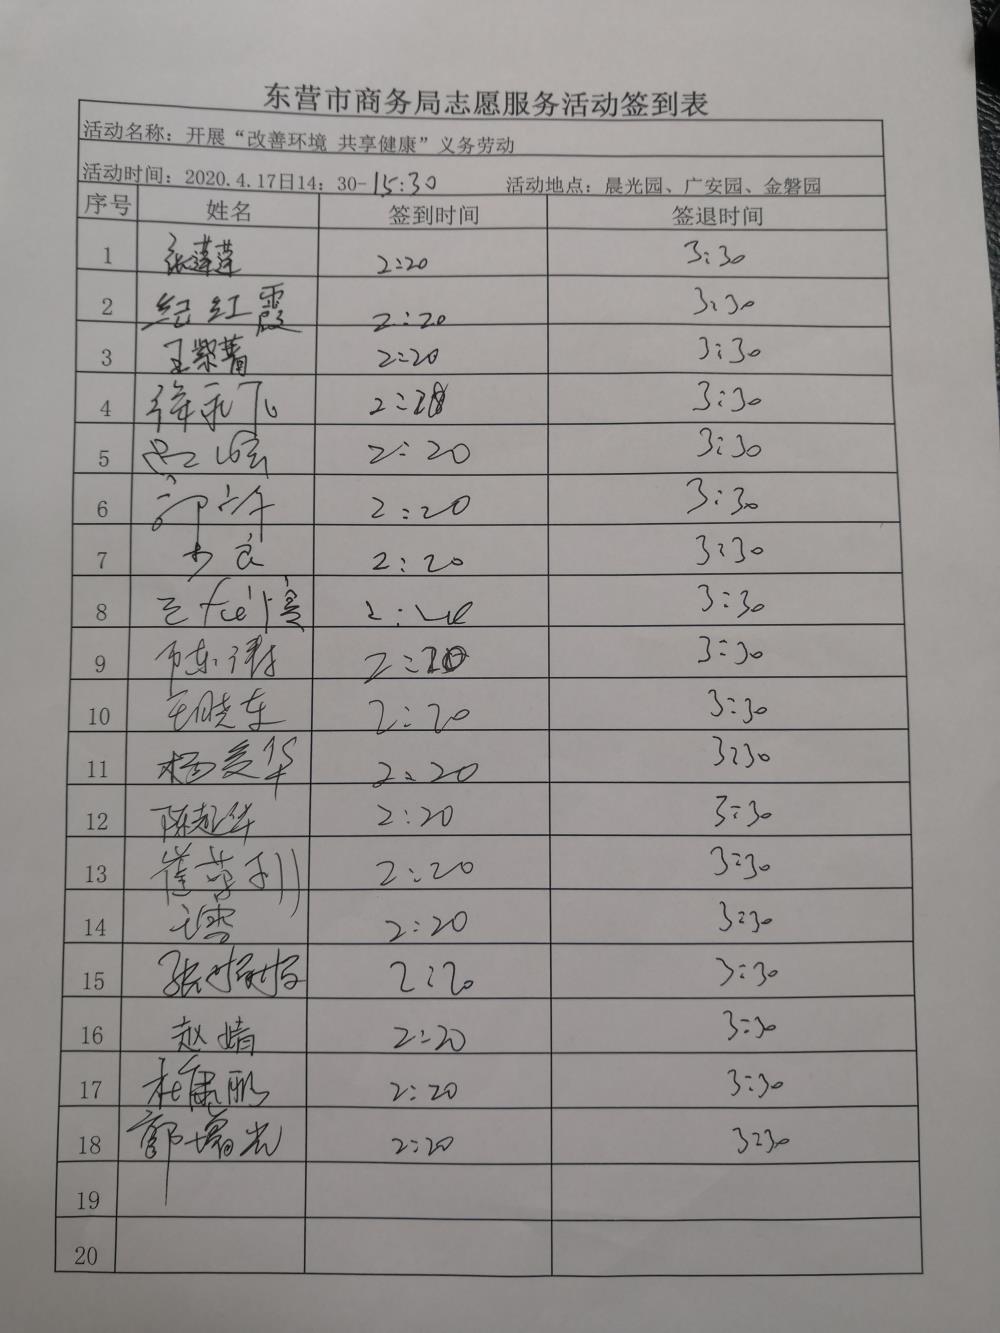 东营市商务局志愿服务活动签到表
活动名称：开展“改善环境 共享健康”义务劳动
活动时间：2020.4.17日14：30-15:30 活动地点：晨光园、广安园、金磐园
序号 姓名 签到时间 签退时间
1 张莲莲 2:20 3:30
2 纪红霞 2:20 3:30
3 王紫菁 2:20 3:30
4 3:30
5 2:20 3:30
6 2:20 3:30
7 2:20 3:30
8 3:30
9 3:30
10 王晓东 2:20 3:30
11 杨爱华 2:20 3:30
12 陈赵华 2:20 3:30
13 崔营利 2:20 3:30
14 2:20 3:30
15 2:20 3:30
16 赵婧 2:20 3:30
17 杜康鹏 2:20 3:30
18 郭增光 2:20 3:30
19
20